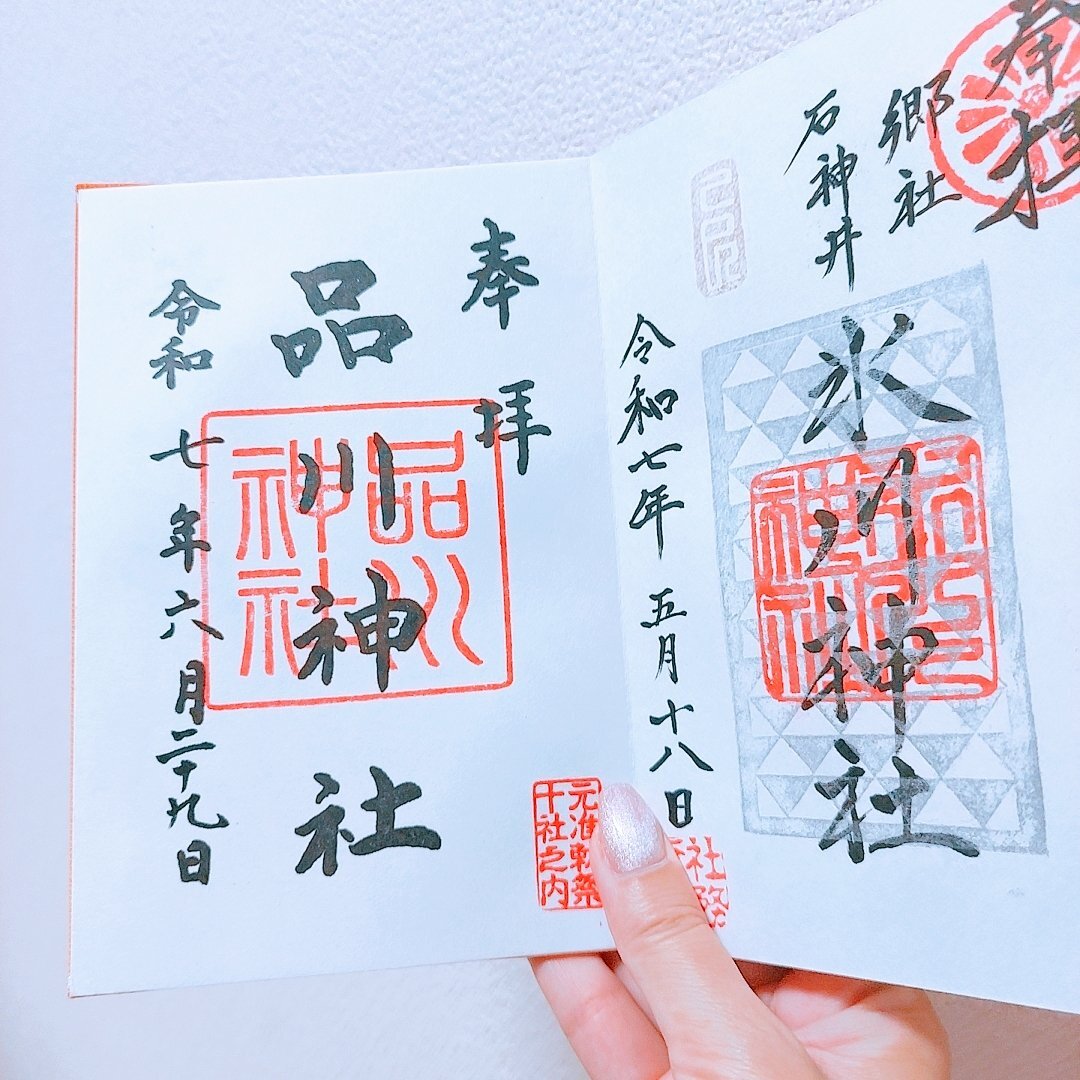 奉拝
郷社
石神井
氷川神社
令和七年 五月十八日
社務
奉拝
品川神社
品川神社
令和 七年六月二十九日
元准勅祭
十社之内